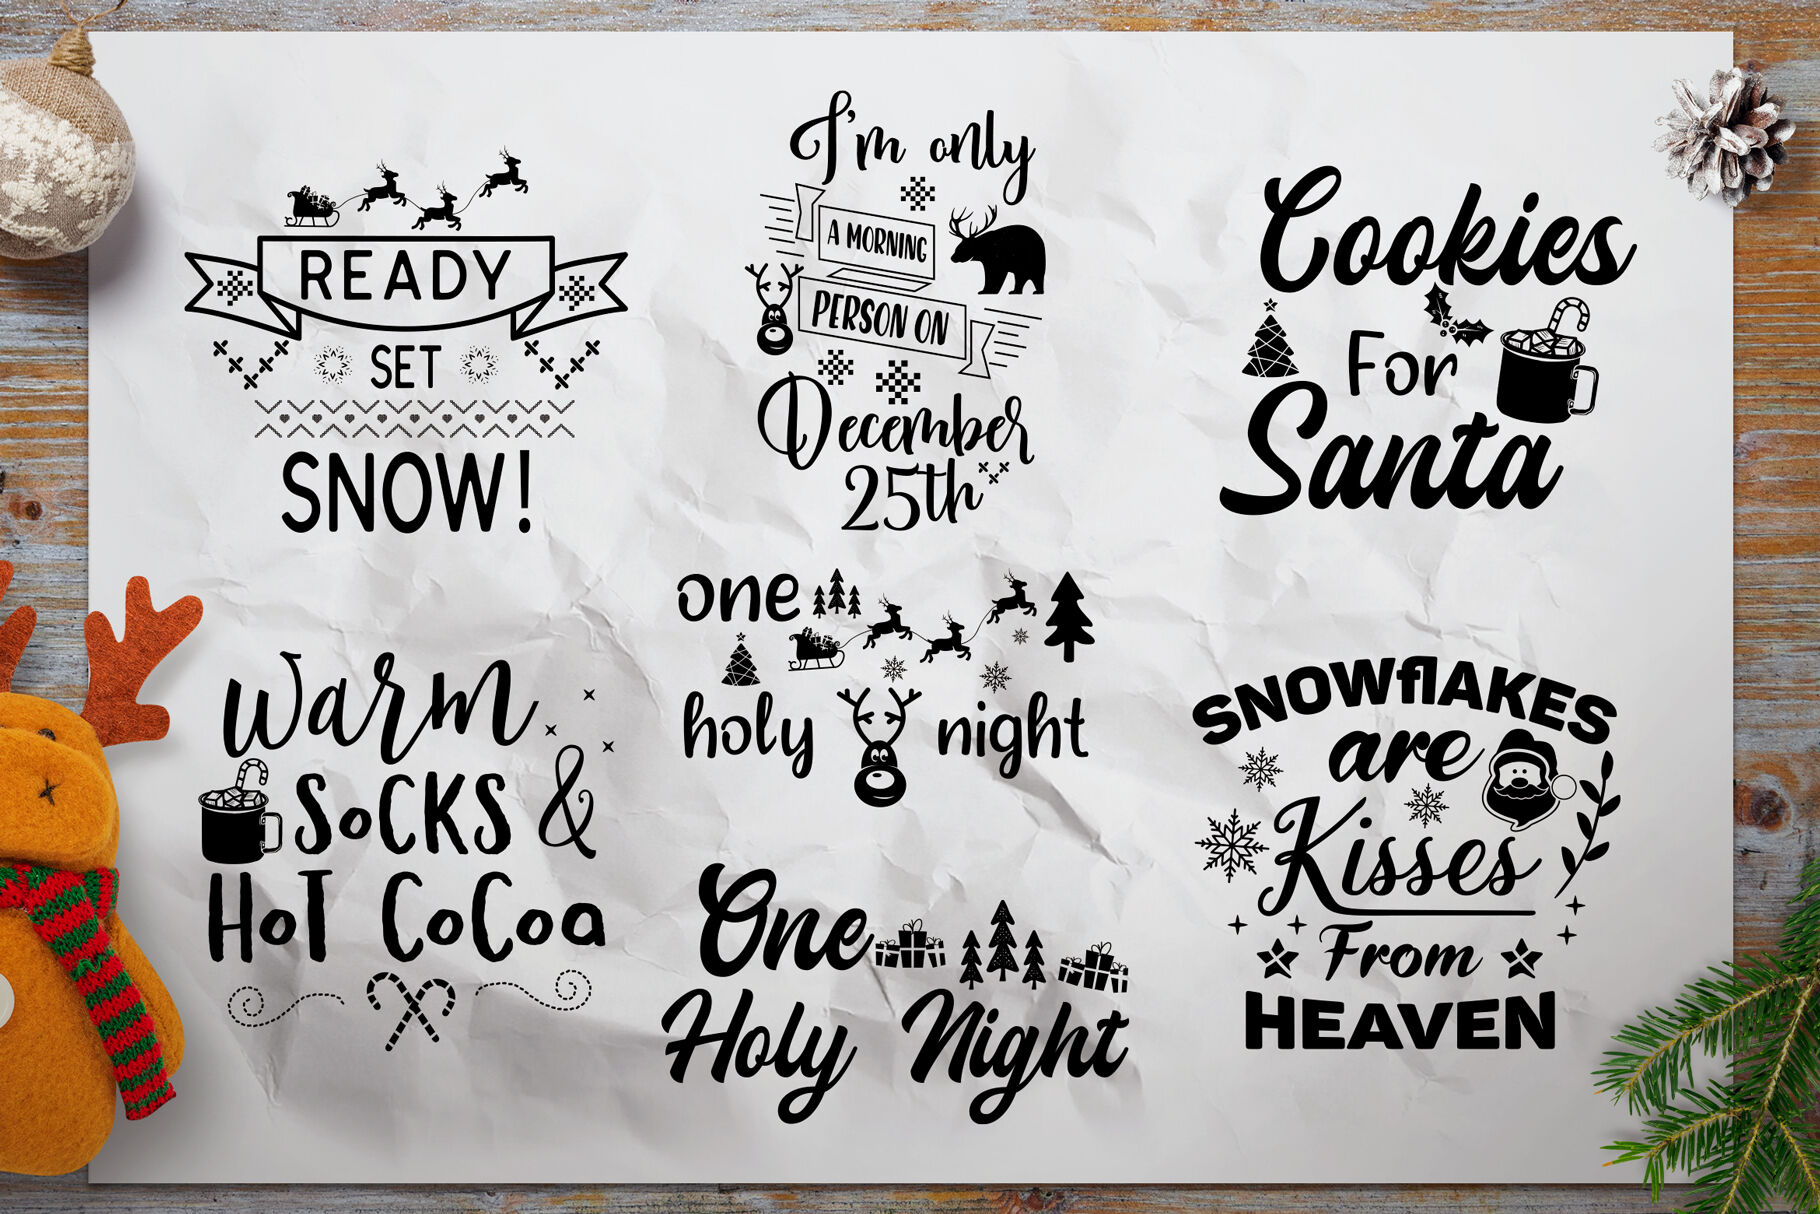 READY
SET
SNOW!
I'm only
A MORNING
PERSON ON
December
25th
Cookies
For
Santa
Warm
SoCKS &
HoT CoCoa
one
holy night
One
Holy Night
SNOWflAKES
are
Kisses
From
HEAVEN